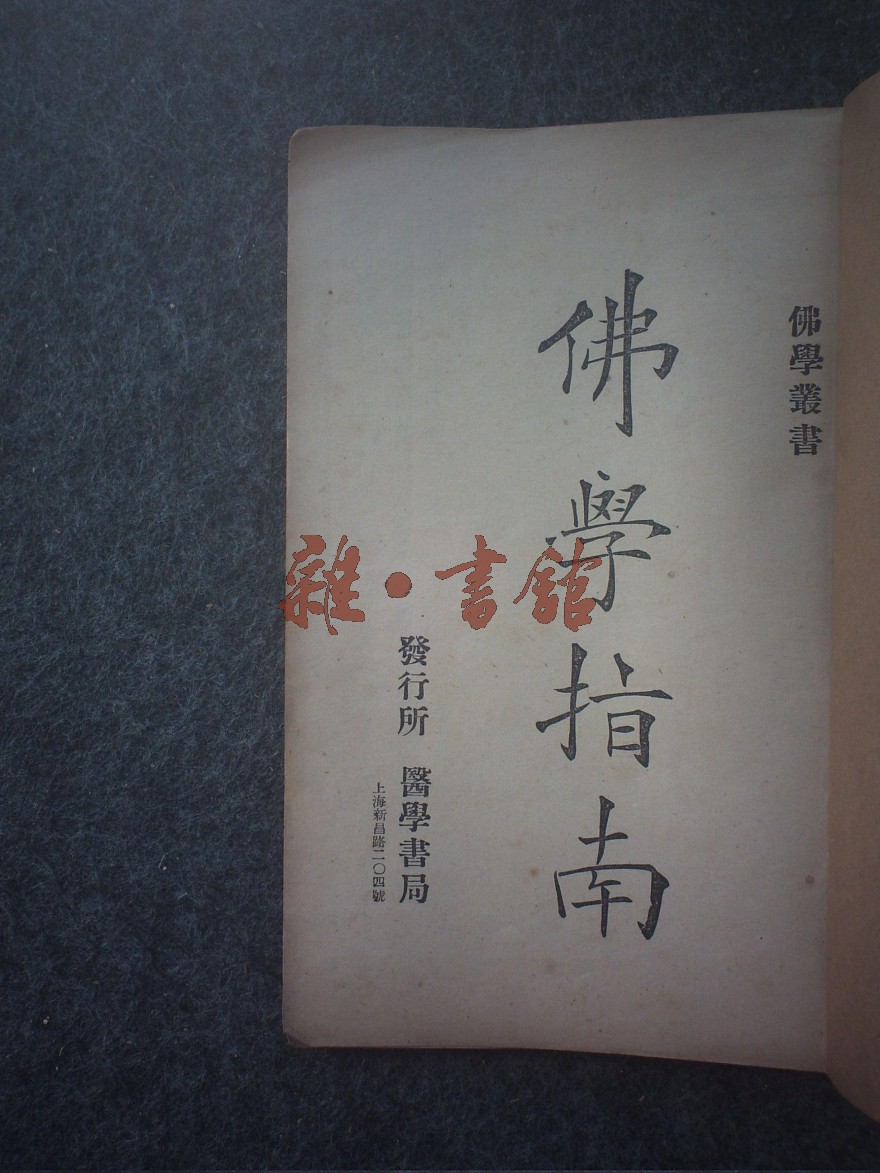 佛學叢書
佛學指南
發行所 醫學書局
上海新昌路二〇四號
雜·書館